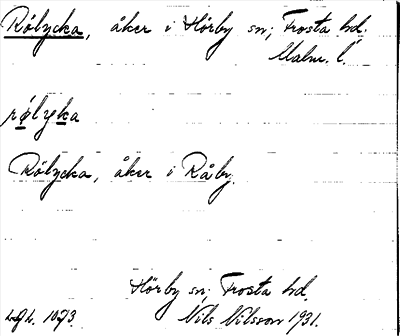 Rölycka, åker i Hörby sn; Frosta hd.
Malm. l.
rølyka
Rölycka, åker i Råby.
Hörby sn; Frosta hd.
1073 Nils Nilsson 1931.